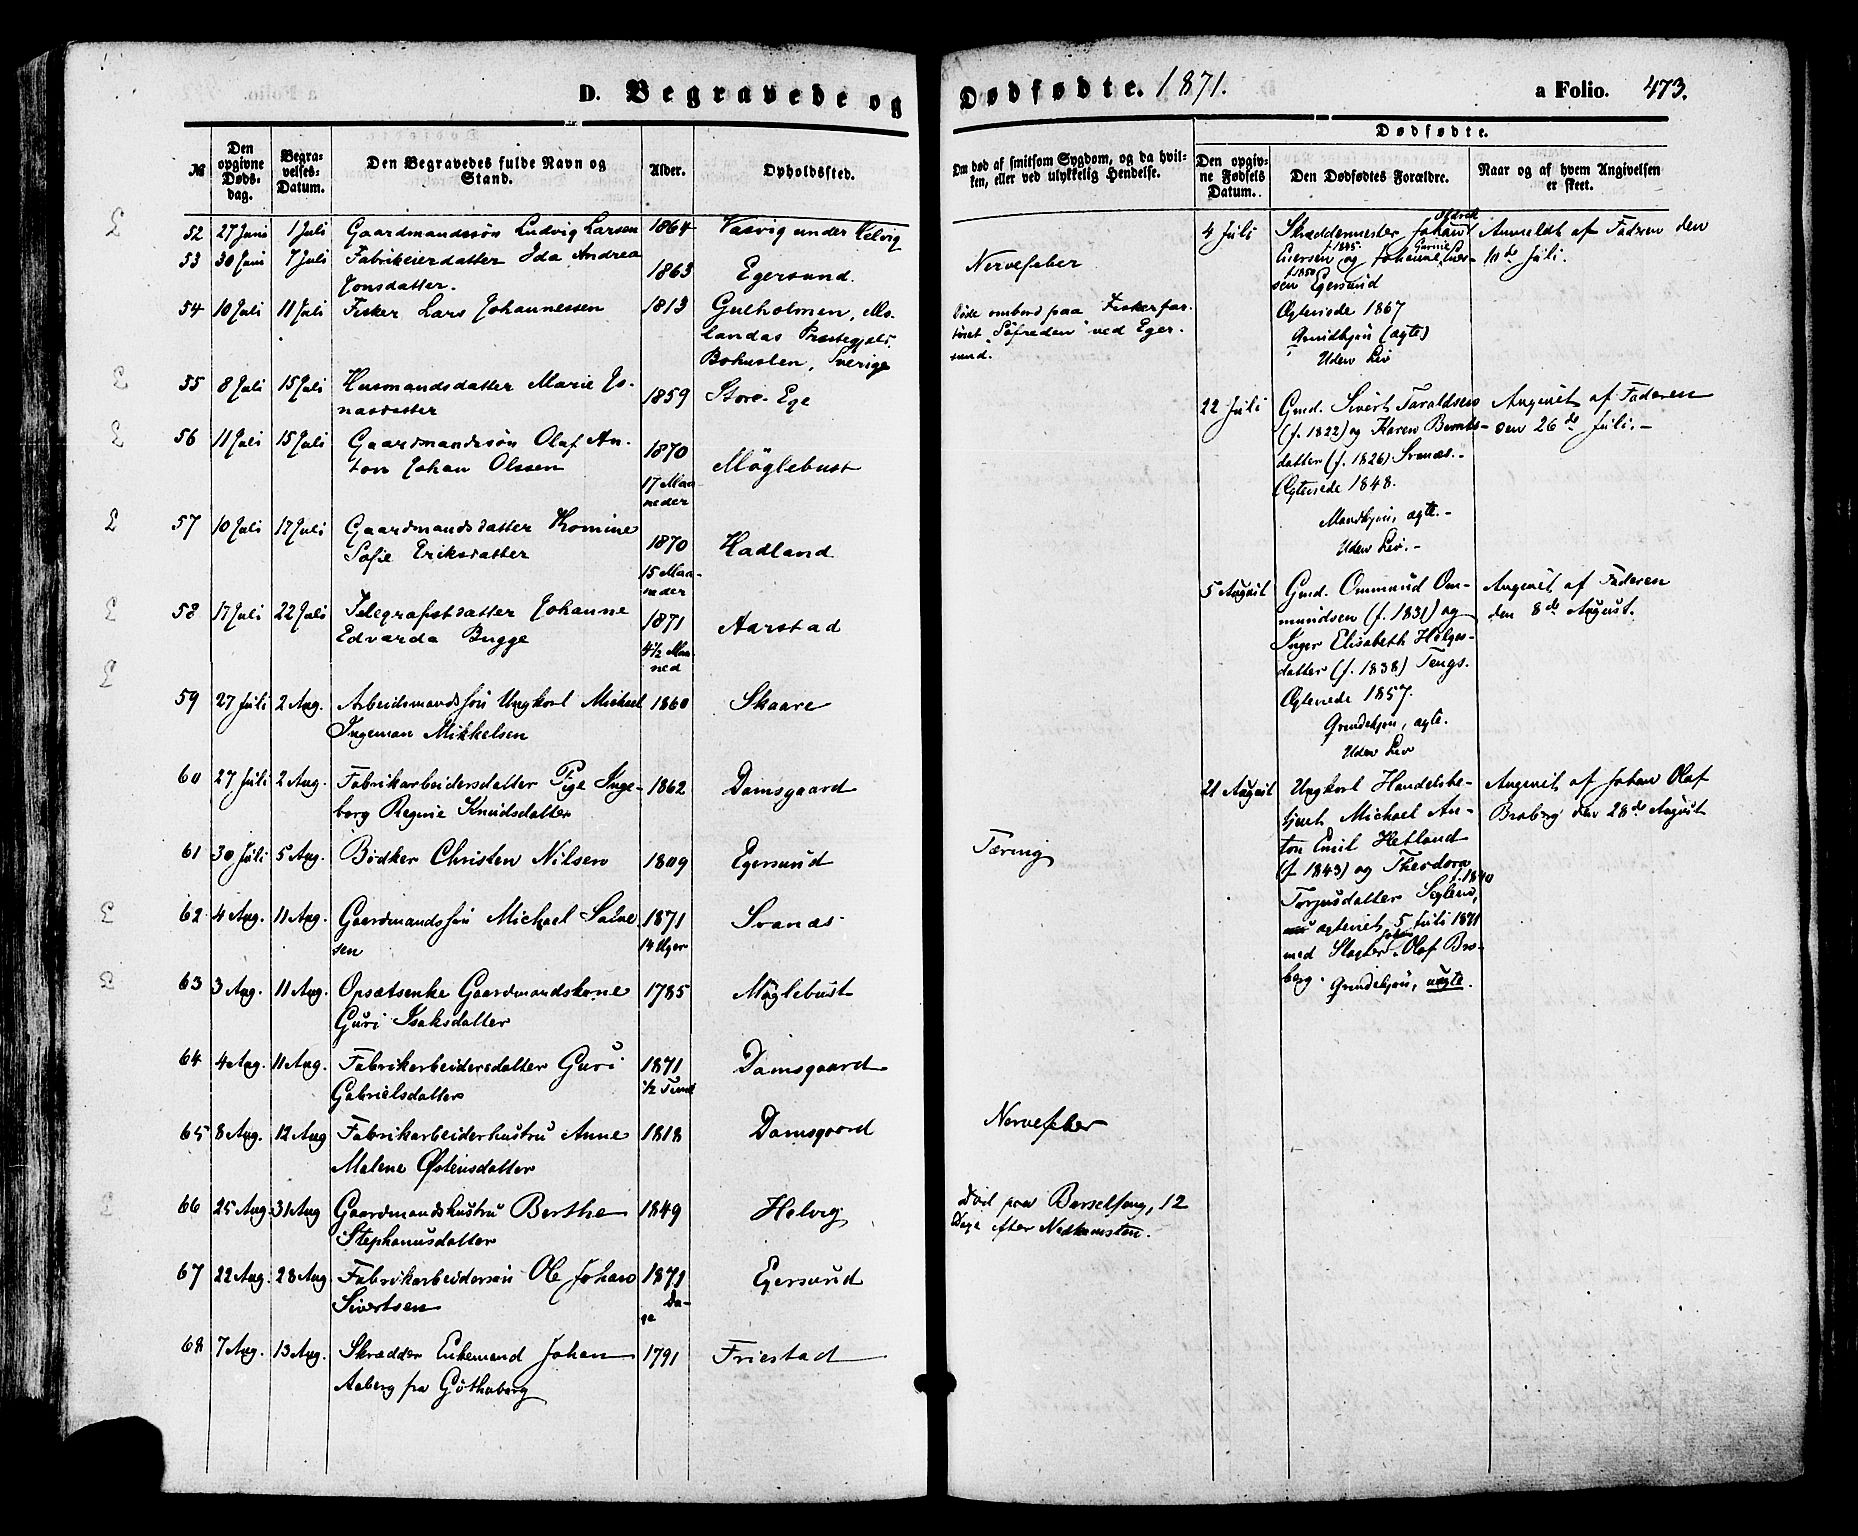 D. Begravede og
Dødfødte. 1871.
a Folio. 473.
№
Den opgivne Døds-dag.
Begra-velses-Datum.
Den Begravedes fulde Navn og Stand.
Alder.
Opholdsted.
Om død af smitsom Sygdom, og da hvil-
ken, eller ved ulykkelig Hændelse.
Dødfødte.
Den opgiv-ne Fødsels Datum.
Den Dødfødtes Forældre.
Naar og af hvem Angivelsen er skeet.
52 27 Juni 1 Juli Gaardmandssøn Ludvig Larsen 1864 Vasvig under Helvig
53 30 Juni 7 Juli Fabrikeierdatter Ida Andrea
Jonsdatter. 1863 Egersund. Nervefeber
54 10 Juli 11 Juli Fisker Lars Johannessen 1813 Gulholmen, Mo-
landas Præstegjæld.
Bohuslen, Sverige
Døde ombord paa Fiskerfar-
tøiet "Søfreden" ved Eger-
sund.
55 8 Juli 15 Juli Husmandsdatter Marie Jo-
nasdatter 1859 Store-Ege
56 11 Juli 15 Juli Gaardmandssøn Olaf An-
ton Johan Olssen 1870
17 Maa-
neder
Møglebust
57 10 Juli 17 Juli Gaardmandsdatter Komine
Sofie Eriksdatter 1870
15 Maa-
neder
Hadland
58 17 Juli 22 Juli Telegrafistdatter Johanne
Edvarda Bugge 1871
4½ Maa-
ned
Aarstad
59 27 Juli 2 Aug. Arbeidsmandssøn Ungkarl Michael 1860 Skaare
Ingeman Mikkelsen
60 27 Juli 2 Aug. Fabrikarbeidersdatter Pige Inge- 1862 Damsgaard
borg Regine Knudsdatter
61 30 Juli 5 Aug. Bødker Christen Nilsen 1809 Egersund Tæring
62 4 Aug. 11 Aug. Gaardmandssøn Michael Salve 1871 Svanæs
sen 14 Uger
63 3 Aug. 11 Aug. Opsætsenke Gaardmandskone 1785 Møglebust
Guri Isaksdatter
64 4 Aug. 11 Aug. Fabrikarbeidersdatter Guri 1871 Damsgaard
Gabrielsdatter ½ Time
65 8 Aug. 12 Aug Fabrikarbeiderhustru Anne 1818 Damsgaard Nervefeber
Malene Østensdatter
66 25 Aug. 31 Aug Gaardmandshustru Berthe 1849 Helvig
Stephanusdatter
Død paa Barselseng, 12
Dage efter Nedkomsten.
67 22 Aug. 28 Aug Fabrikarbeidersøn Ole Johan 1871 Egersund
Sivertsen Da-
ge
68 7 Aug. 13 Aug. Skrædder Enkemand Johan 1791 Friestad
Aaberg fra Gøthaborg
4 Juli Skræddermester Johan
f. 1845
f. 1850
sen Egersund
Ægteviede 1867
(ægte)
Uden Liv
Anmeldt af Faderen den
10de Juli.
22 Juli Gmd. Sivert Taraldsen
(f. 1822) og Karen Bernts-
datter (f. 1826) Svanæs.-
Ægteviede 1848.
Mandkjøn, ægte.-
Uden Liv.-
Angivet af Faderen
den 26de Juli.-
5 August Gmd. Ommund Om-
mundsen (f. 1831) og
Inger Elisabeth Helges-
datter (f. 1838) Tengs.
Ægteviede 1857.
Qvindekjøn, ægte.
Uden Liv
Angivet af Faderen
den 8de August.
21 August Ungkarl Handelsbe-
tjent Michael An-
ton Emil Hetland
(f. 1843) og Theodora
f. 1840
Torjusdatter
ægteviet 5 Juli 1871
med Slagter Johan Olaf Bro-
berg. Qvindekjøn, uægte.
Angivet af Johan Olaf
Broberg den 28de August